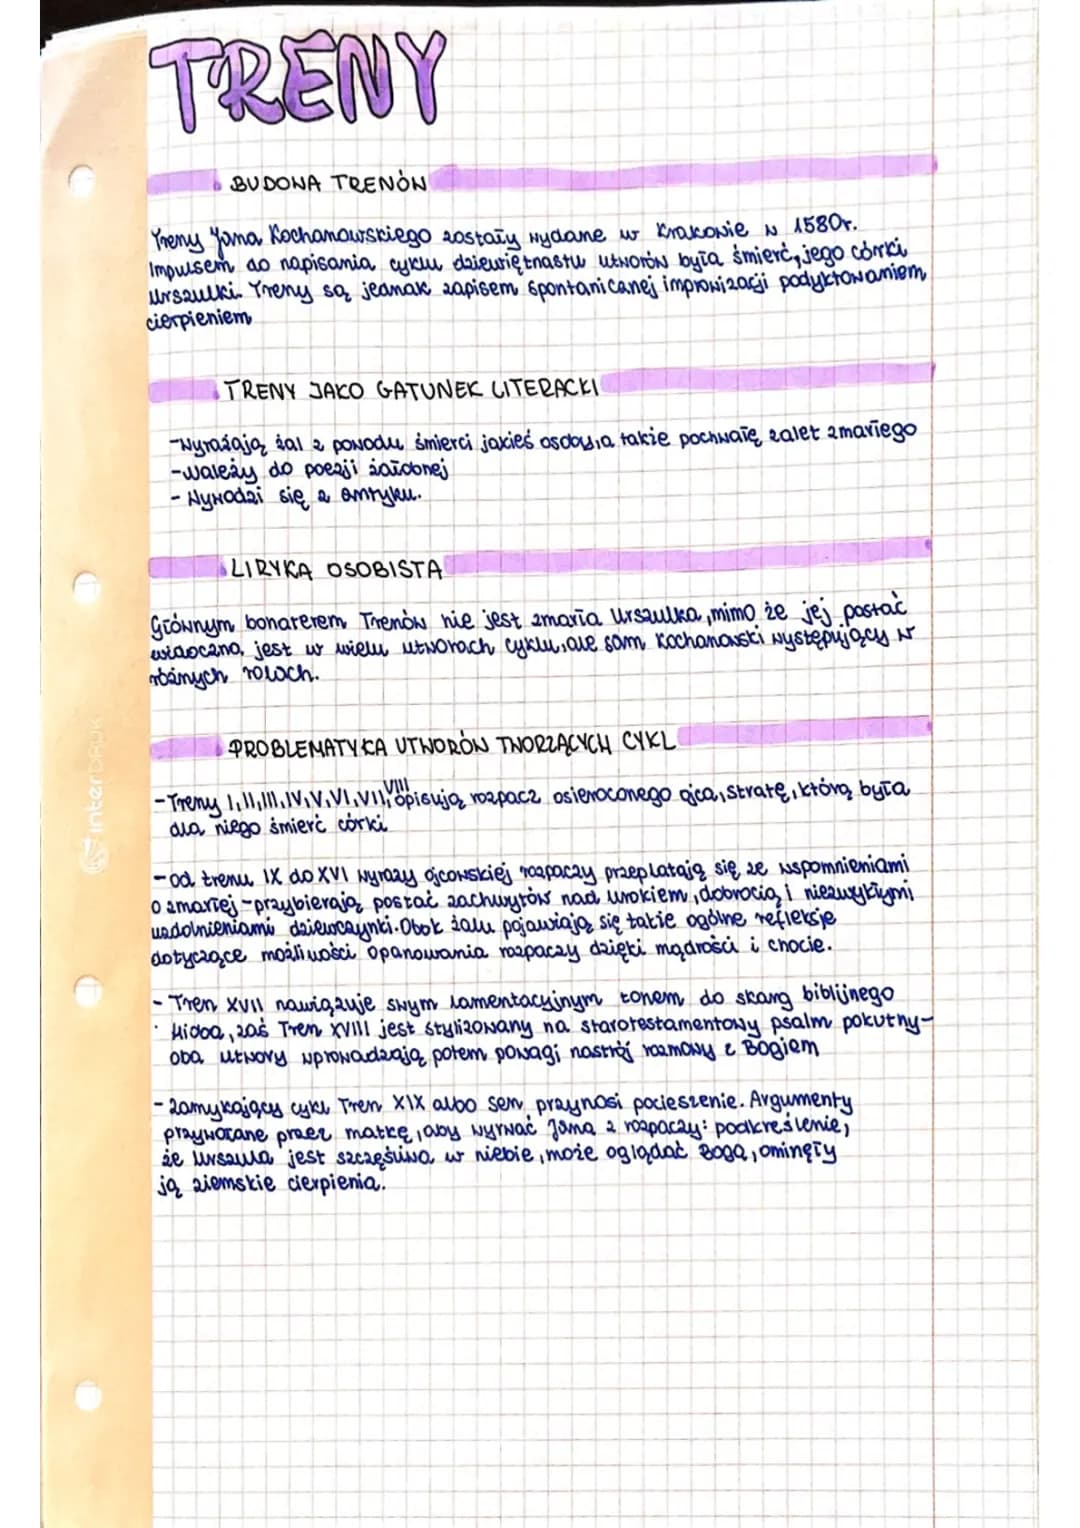 TRENY
BUDOWA TRENÓW
Treny Jana Kochanowskiego zostały wydane w Krakowie w 1580r.
Impulsem do napisania cyklu dziewiętnastu utworów była śmierć, jego córki
Urszulki. Treny są jednak zapisem spontanicznej improwizacji podyktowaniem
cierpieniem
TRENY JAKO GATUNEK LITERACKI
-Wyrażają żal z powodu śmierci jakieś osoby, a także pochwałę zalet zmarłego
-należy do poezji żałobnej
- Wywodzi się z antyku.
LIRYKA OSOBISTA
Głównym bohaterem Trenów nie jest zmarła Urszulka, mimo że jej postać
widoczna, jest w wielu utworach cyklu, ale sam Kochanowski występujący w
różnych rolach.
PROBLEMATYKA UTWORÓW TWORZĄCYCH CYKL
-Treny I, II, III, IV, V, VI, VII, VIII opisują rozpacz osieroconego ojca, stratę, którą była
dla niego śmierć córki
-od trenu IX do XVI wyrazy ojcowskiej rozpaczy przeplatają się ze wspomnieniami
o zmarłej -przybierają postać zachwytów nad urokiem, dobrocią i niezwykłymi
uzdolnieniami dziewczynki. Obok żalu pojawiają się takie ogólne refleksje
dotyczące możliwości opanowania rozpaczy dzięki mądrości i cnocie.
- Tren XVII nawiązuje swym lamentacyjnym tonem do skarg biblijnego
Hioba, zaś Tren XVIII jest stylizowany na starotestamentowy psalm pokutny-
oba utwory wprowadzają potem powagi nastrój rozmowy z Bogiem
- zamykający cykl Tren XIX albo sen przynosi pocieszenie. Argumenty
przywołane przez matkę, aby wyrwać Jana z rozpaczy: podkreślenie,
że Urszula jest szczęśliwa w niebie, może oglądać Boga, ominęły
ją ziemskie cierpienia.
interDRUK